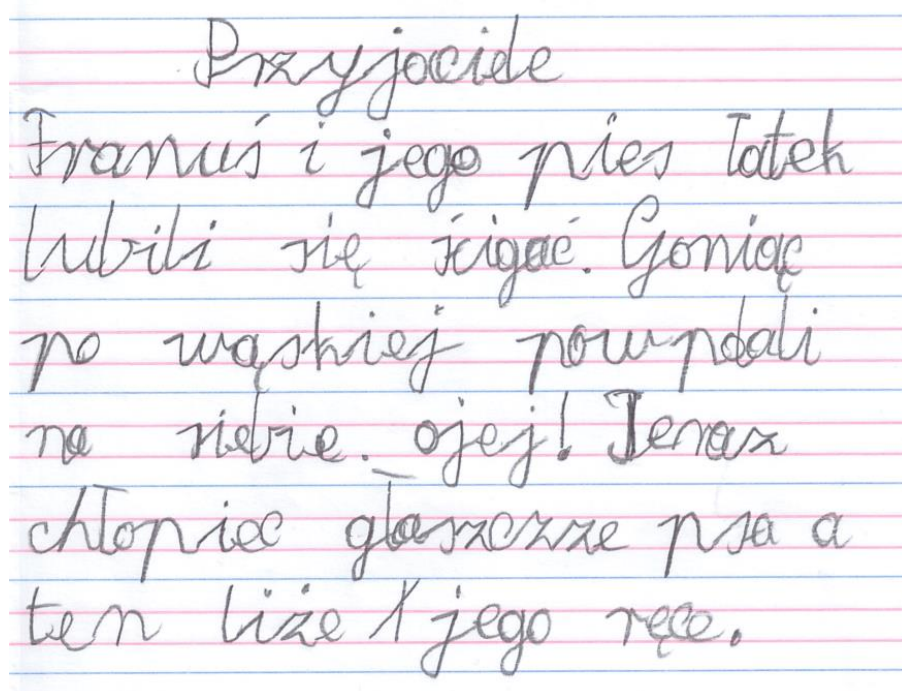 Przyjociele
Franuś i jego pies Łatek
lubili się ścigać. Goniąc
po wąskiej powpdali
na siebie. ojej! Teraz
chłopiec głaszczze psa a
ten liże jego ręce.